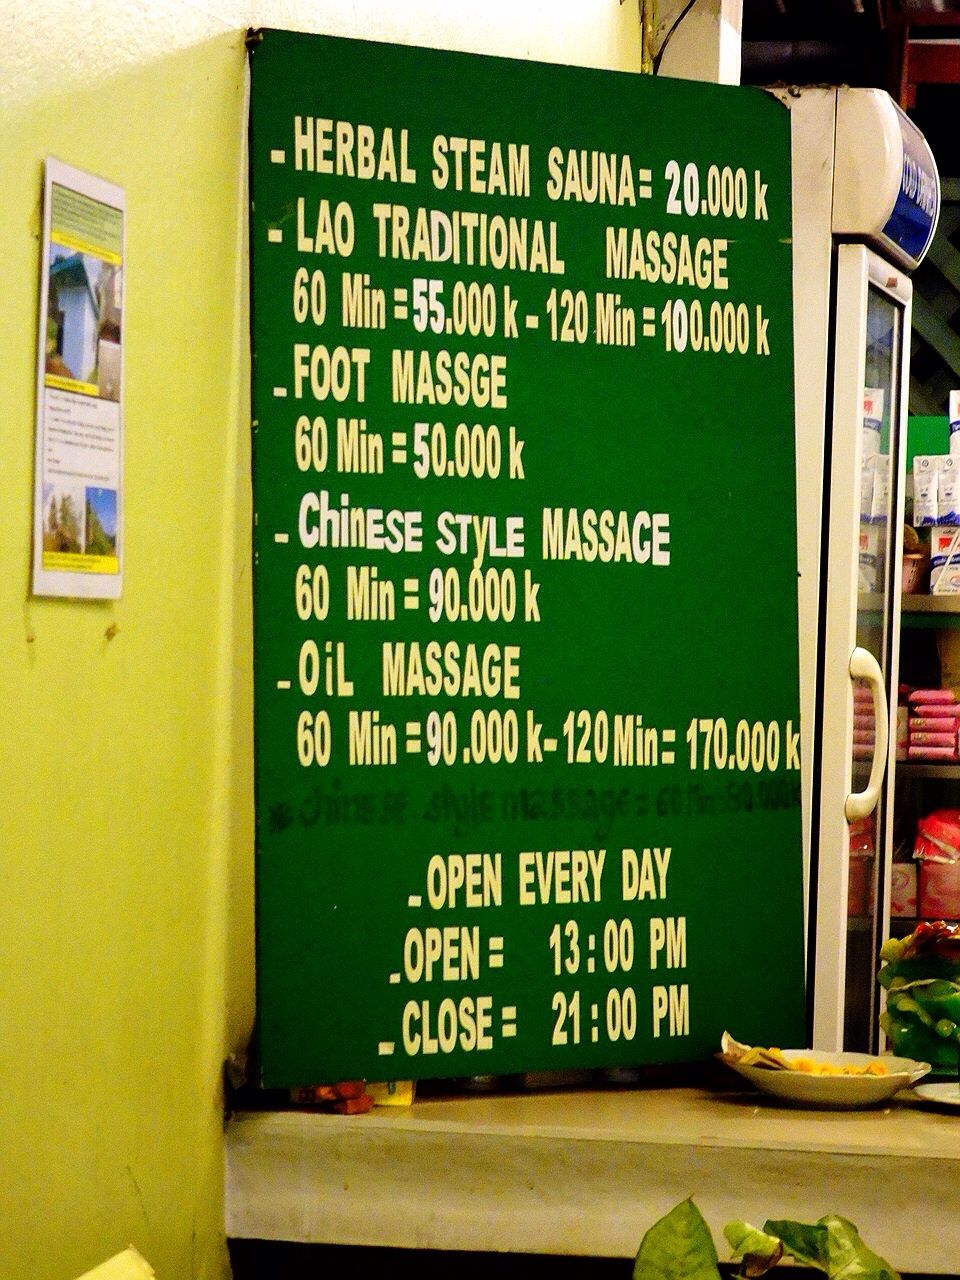 - HERBAL STEAM SAUNA = 20.000 k
- LAO TRADITIONAL MASSAGE
60 Min = 55.000 k - 120 Min = 100.000 k
- FOOT MASSGE
60 Min = 50.000 k
- ChinESE STyLE MASSAGE
60 Min = 90.000 k
- OiL MASSAGE
60 Min = 90.000 k - 120 Min = 170.000 k
chinese style massage = 60 Min = 80.000 k
- OPEN EVERY DAY
- OPEN = 13 : 00 PM
- CLOSE = 21 : 00 PM